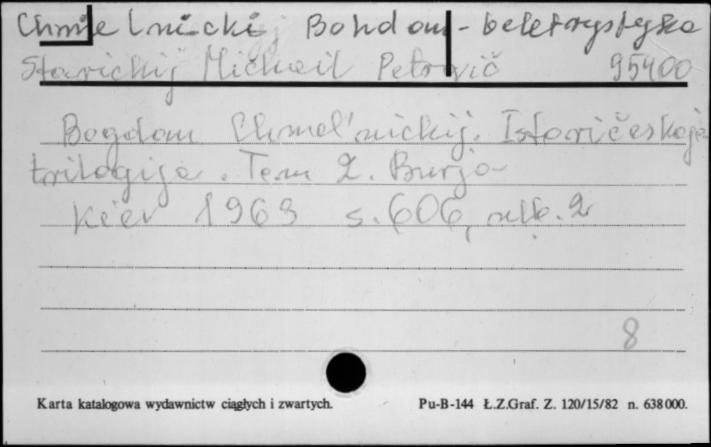 Chmielnicki, Bohdan - beletrystyka
Starickij Michail Petrovič 95400
Bogdan Chmel'nickij. Istoričeskaja
trilogija. Tom 2. Burja
Kiev 1963 s. 606, nlb. 2
8
Karta katalogowa wydawnictw ciągłych i zwartych. Pu-B-144 Ł.Z.Graf. Z. 120/15/82 n. 638000.